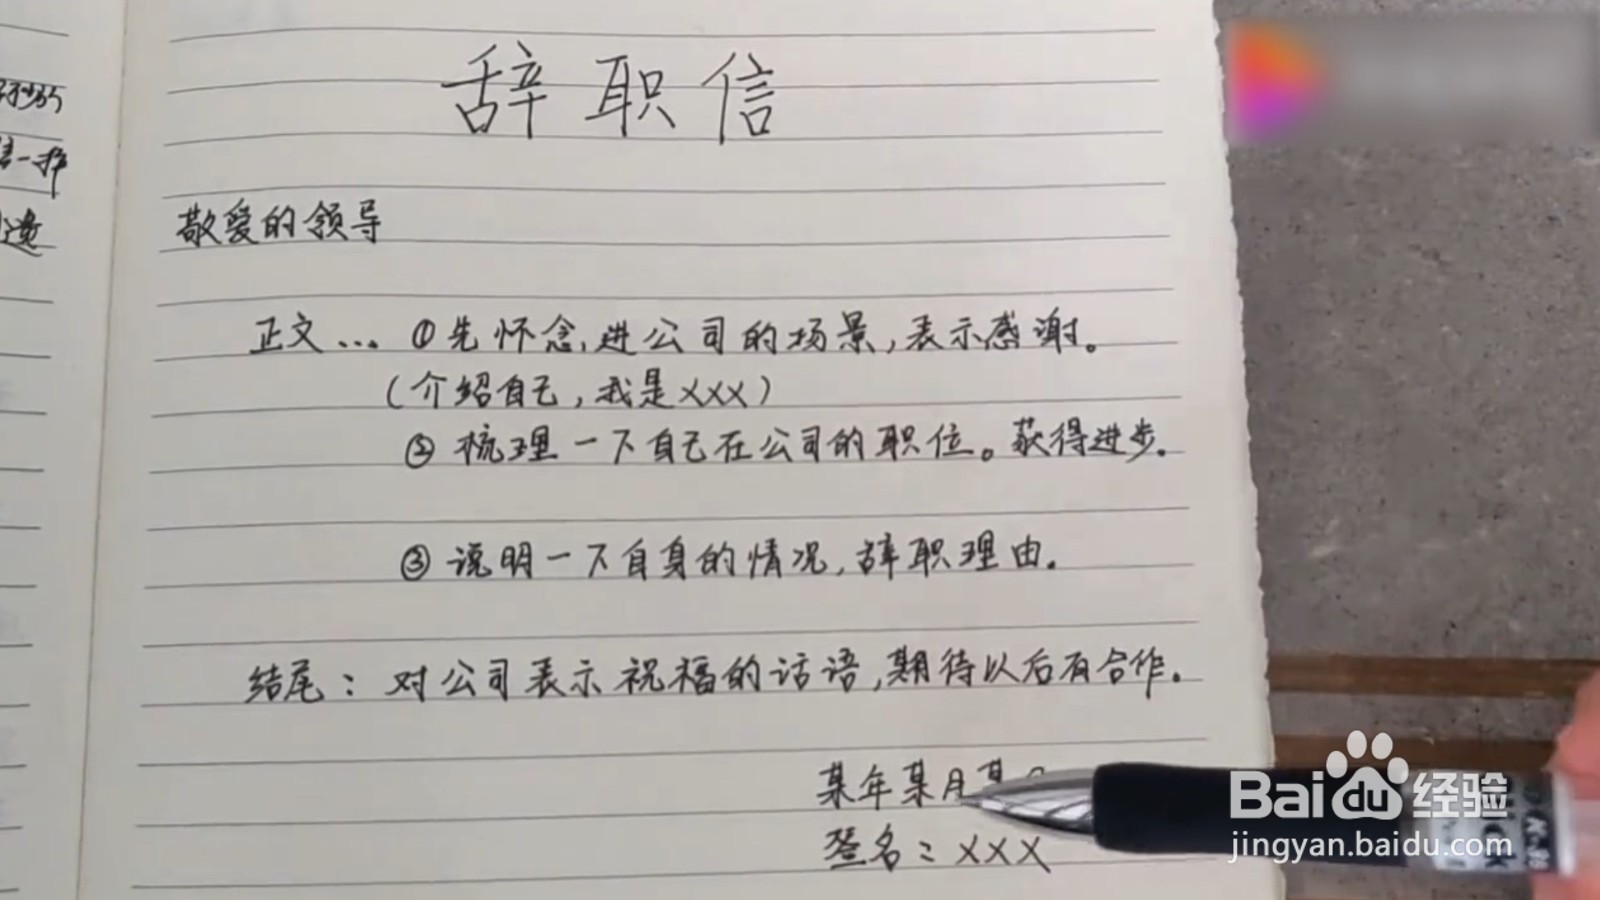 辞职信
敬爱的领导
正文... ①先怀念,进公司的场景,表示感谢。
(介绍自己,我是XXX)
② 梳理一下自己在公司的职位。获得进步.
③ 说明一下自身的情况,辞职理由.
结尾:对公司表示祝福的话语,期待以后有合作.
某年某月某
签名:XXX
Baidu经验
jingyan.baidu.com